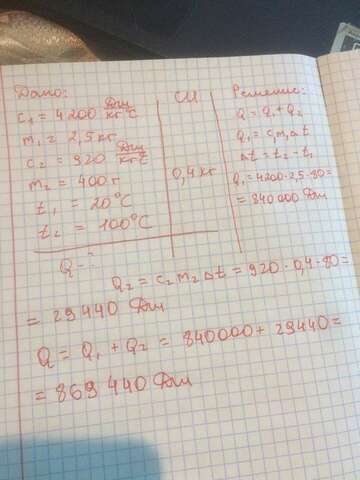 Дано:
c₁ = 4200 Дж/кг°С
m₁ = 2,5 кг
c₂ = 920 Дж/кг°С
m₂ = 400 г
t₁ = 20°С
t₂ = 100°С
Q - ?
СИ
0,4 кг
Решение:
Q = Q₁ + Q₂
Q₁ = c₁m₁Δt
Δt = t₂ - t₁
Q₁ = 4200 · 2,5 · 80 =
= 840000 Дж
Q₂ = c₂ m₂ Δt = 920 · 0,4 · 80 =
= 29 440 Дж
Q = Q₁ + Q₂ = 840000 + 29440 =
= 869 440 Дж